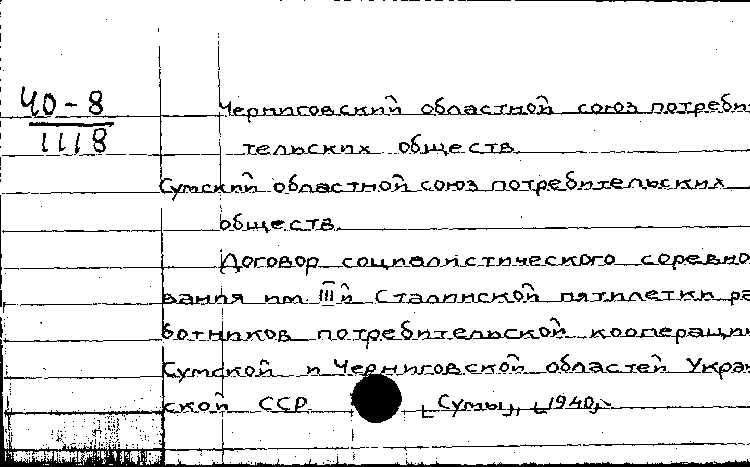 40-8
1118
Черниговский областной союз потреби
тельских обществ.
Сумский областной союз потребительских
обществ.
Договор социалистического соревно
вания им III й Сталинской пятилетки ра
ботников потребительской кооперации
Сумской и Черниговской областей Украин
ской ССР. [Сумы], [1940].